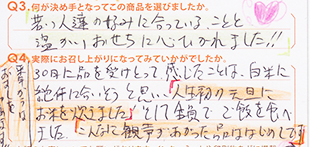 Q3. 何が決め手となってこの商品を選びましたか。
若い人達の好みに合っていることと
温かいおせちに心ひかれました!!
Q4. 実際にお召し上がりになってみていかがでしたか。
30日に品を受けとって感じたことは、白米に
絶体に合いそうと思い「人生初の元旦に
お米を炊きました」そして全員でご飯を食べ
ました。こんなに歓声があがった品ははじめてです